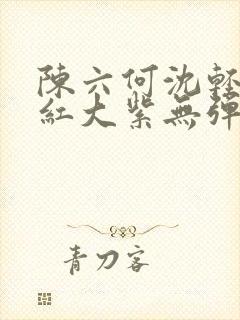 陳六何沈輕
紅大紫無彈
青刀客